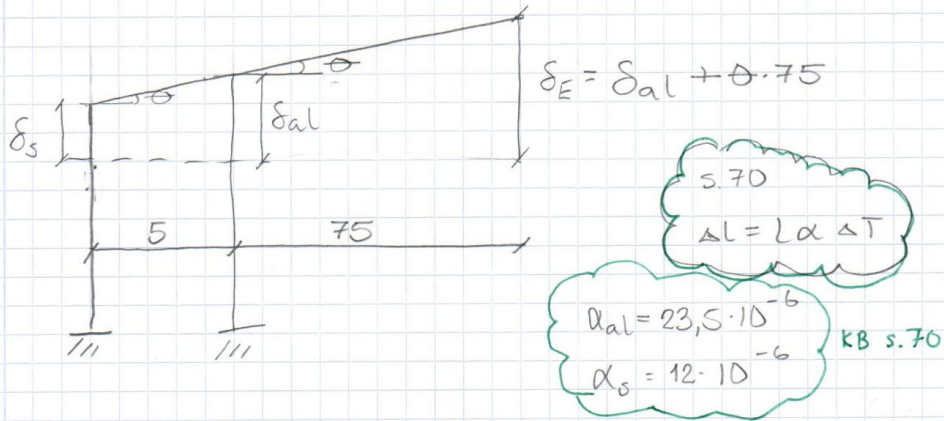 θ
θ
δ_E = δ_al + θ·75
δ_s
δ_al
s.70
Δl = Lα ΔT
5
75
α_al = 23,5·10^-6
α_s = 12·10^-6
KB s.70